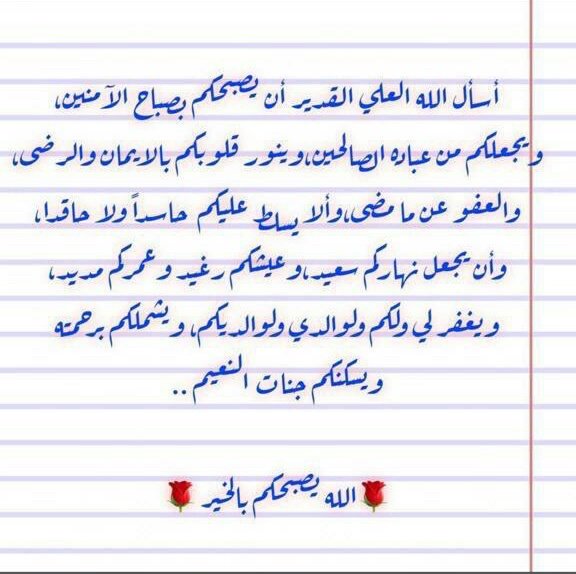 أسأل الله العلي القدير أن يصبحكم بصباح الآمنين،
ويجعلكم من عباده الصالحين،وينور قلوبكم بالايمان والرضى،
والعفو عن ما مضى،وألا يسلط عليكم حاسداً ولا حاقدا،
وأن يجعل نهاركم سعيد،وعيشكم رغيد وعمركم مديد،
ويغفر لي ولكم ولوالدي ولوالديكم، ويشملكم برحمته
ويسكنكم جنات النعيم ..
🌹الله يصبحكم بالخير 🌹